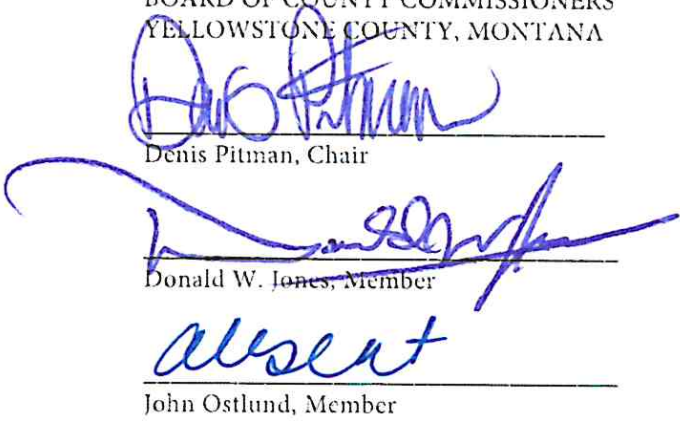 BOARD OF COUNTY COMMISSIONERS
YELLOWSTONE COUNTY, MONTANA
Denis Pitman
Denis Pitman, Chair
Donald W. Jones, Member
absent
John Ostlund, Member